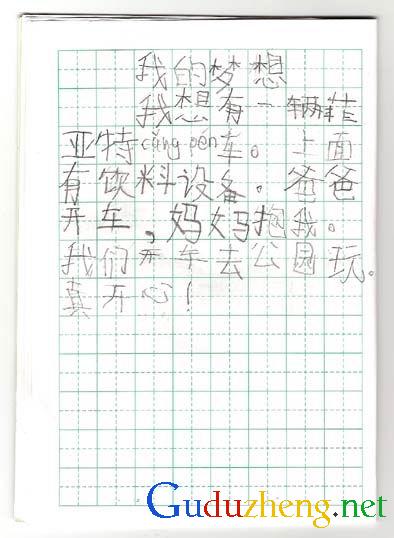 我的梦想
我想有一辆菲
亚特cǎng pén车。上面
有饮料设备。爸爸
开车，妈妈抱我。
我们开车去公园玩。
真开心！
Guduzheng.net